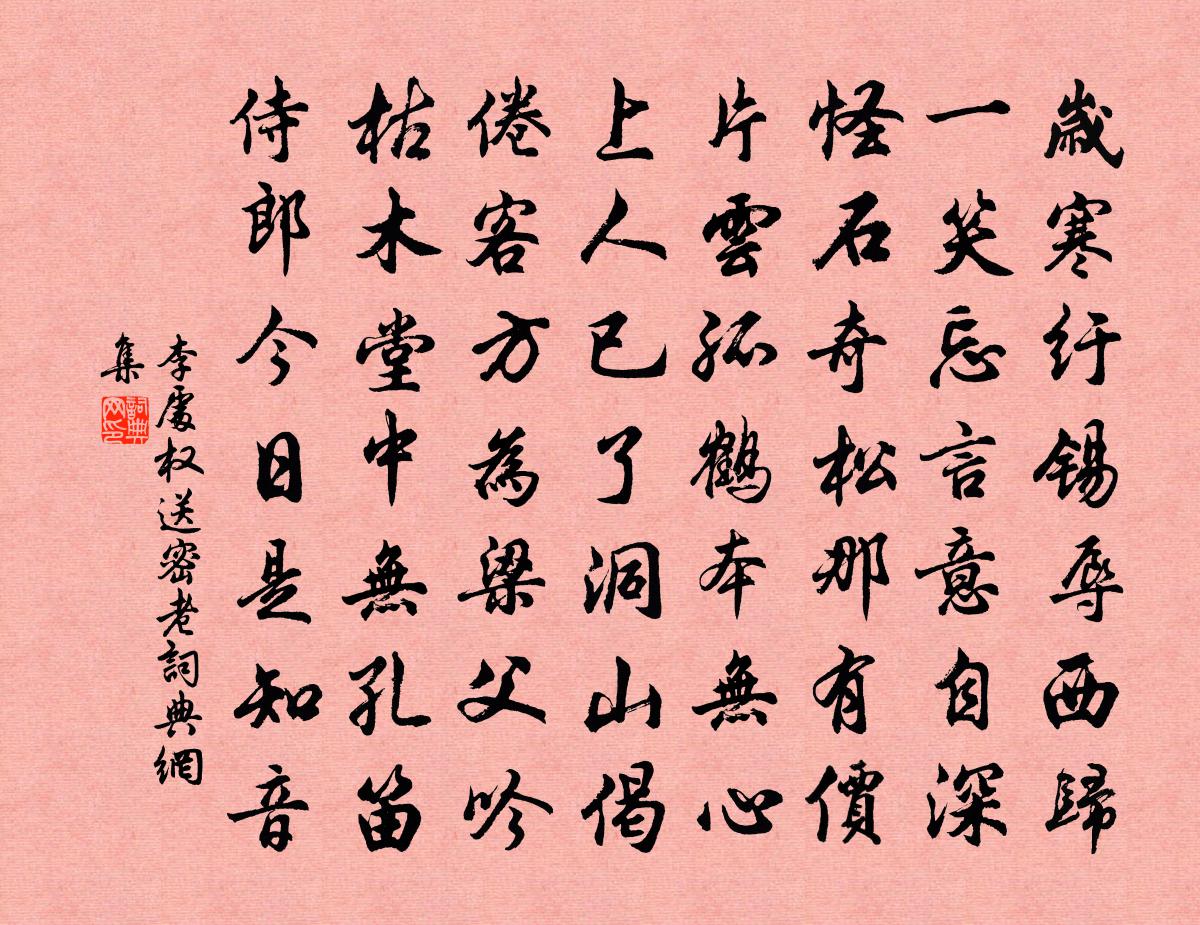 歲寒纡锡辱西歸
一笑忘言意自深
怪石奇松那有價
片雲孤鹤本無心
上人已了洞山偈
倦客方為梁父吟
枯木堂中無孔笛
侍郎今日是知音
李處权送密老詞典網
集
詞典网印